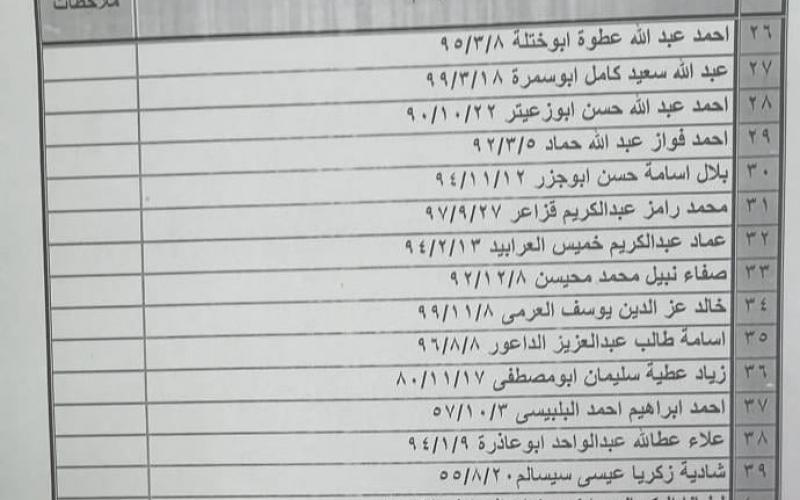 ملاحظات
٢٦ احمد عبد الله عطوة ابوختلة ٩٥/٣/٨
٢٧ عبد الله سعيد كامل ابوسمرة ٩٩/٣/١٨
٢٨ احمد عبد الله حسن ابوزعيتر ٩٠/١٠/٢٢
٢٩ احمد فواز عبد الله حماد ٩٢/٣/٥
٣٠ بلال اسامة حسن ابوجزر ٩٤/١١/١٢
٣١ محمد رامز عبدالكريم قزاعر ٩٧/٩/٢٧
٣٢ عماد عبدالكريم خميس العرابيد ٩٤/٢/١٣
٣٣ صفاء نبيل محمد محيسن ٩٢/١٢/٨
٣٤ خالد عز الدين يوسف العرمى ٩٩/١١/٨
٣٥ اسامة طالب عبدالعزيز الداعور ٩٦/٨/٨
٣٦ زياد عطية سليمان ابومصطفى ٨٠/١١/١٧
٣٧ احمد ابراهيم احمد البلبيسى ٥٧/١٠/٣
٣٨ علاء عطالله عبدالواحد ابوعاذرة ٩٤/١/٩
٣٩ شادية زكريا عيسى سيسالم ٥٥/٨/٢٠